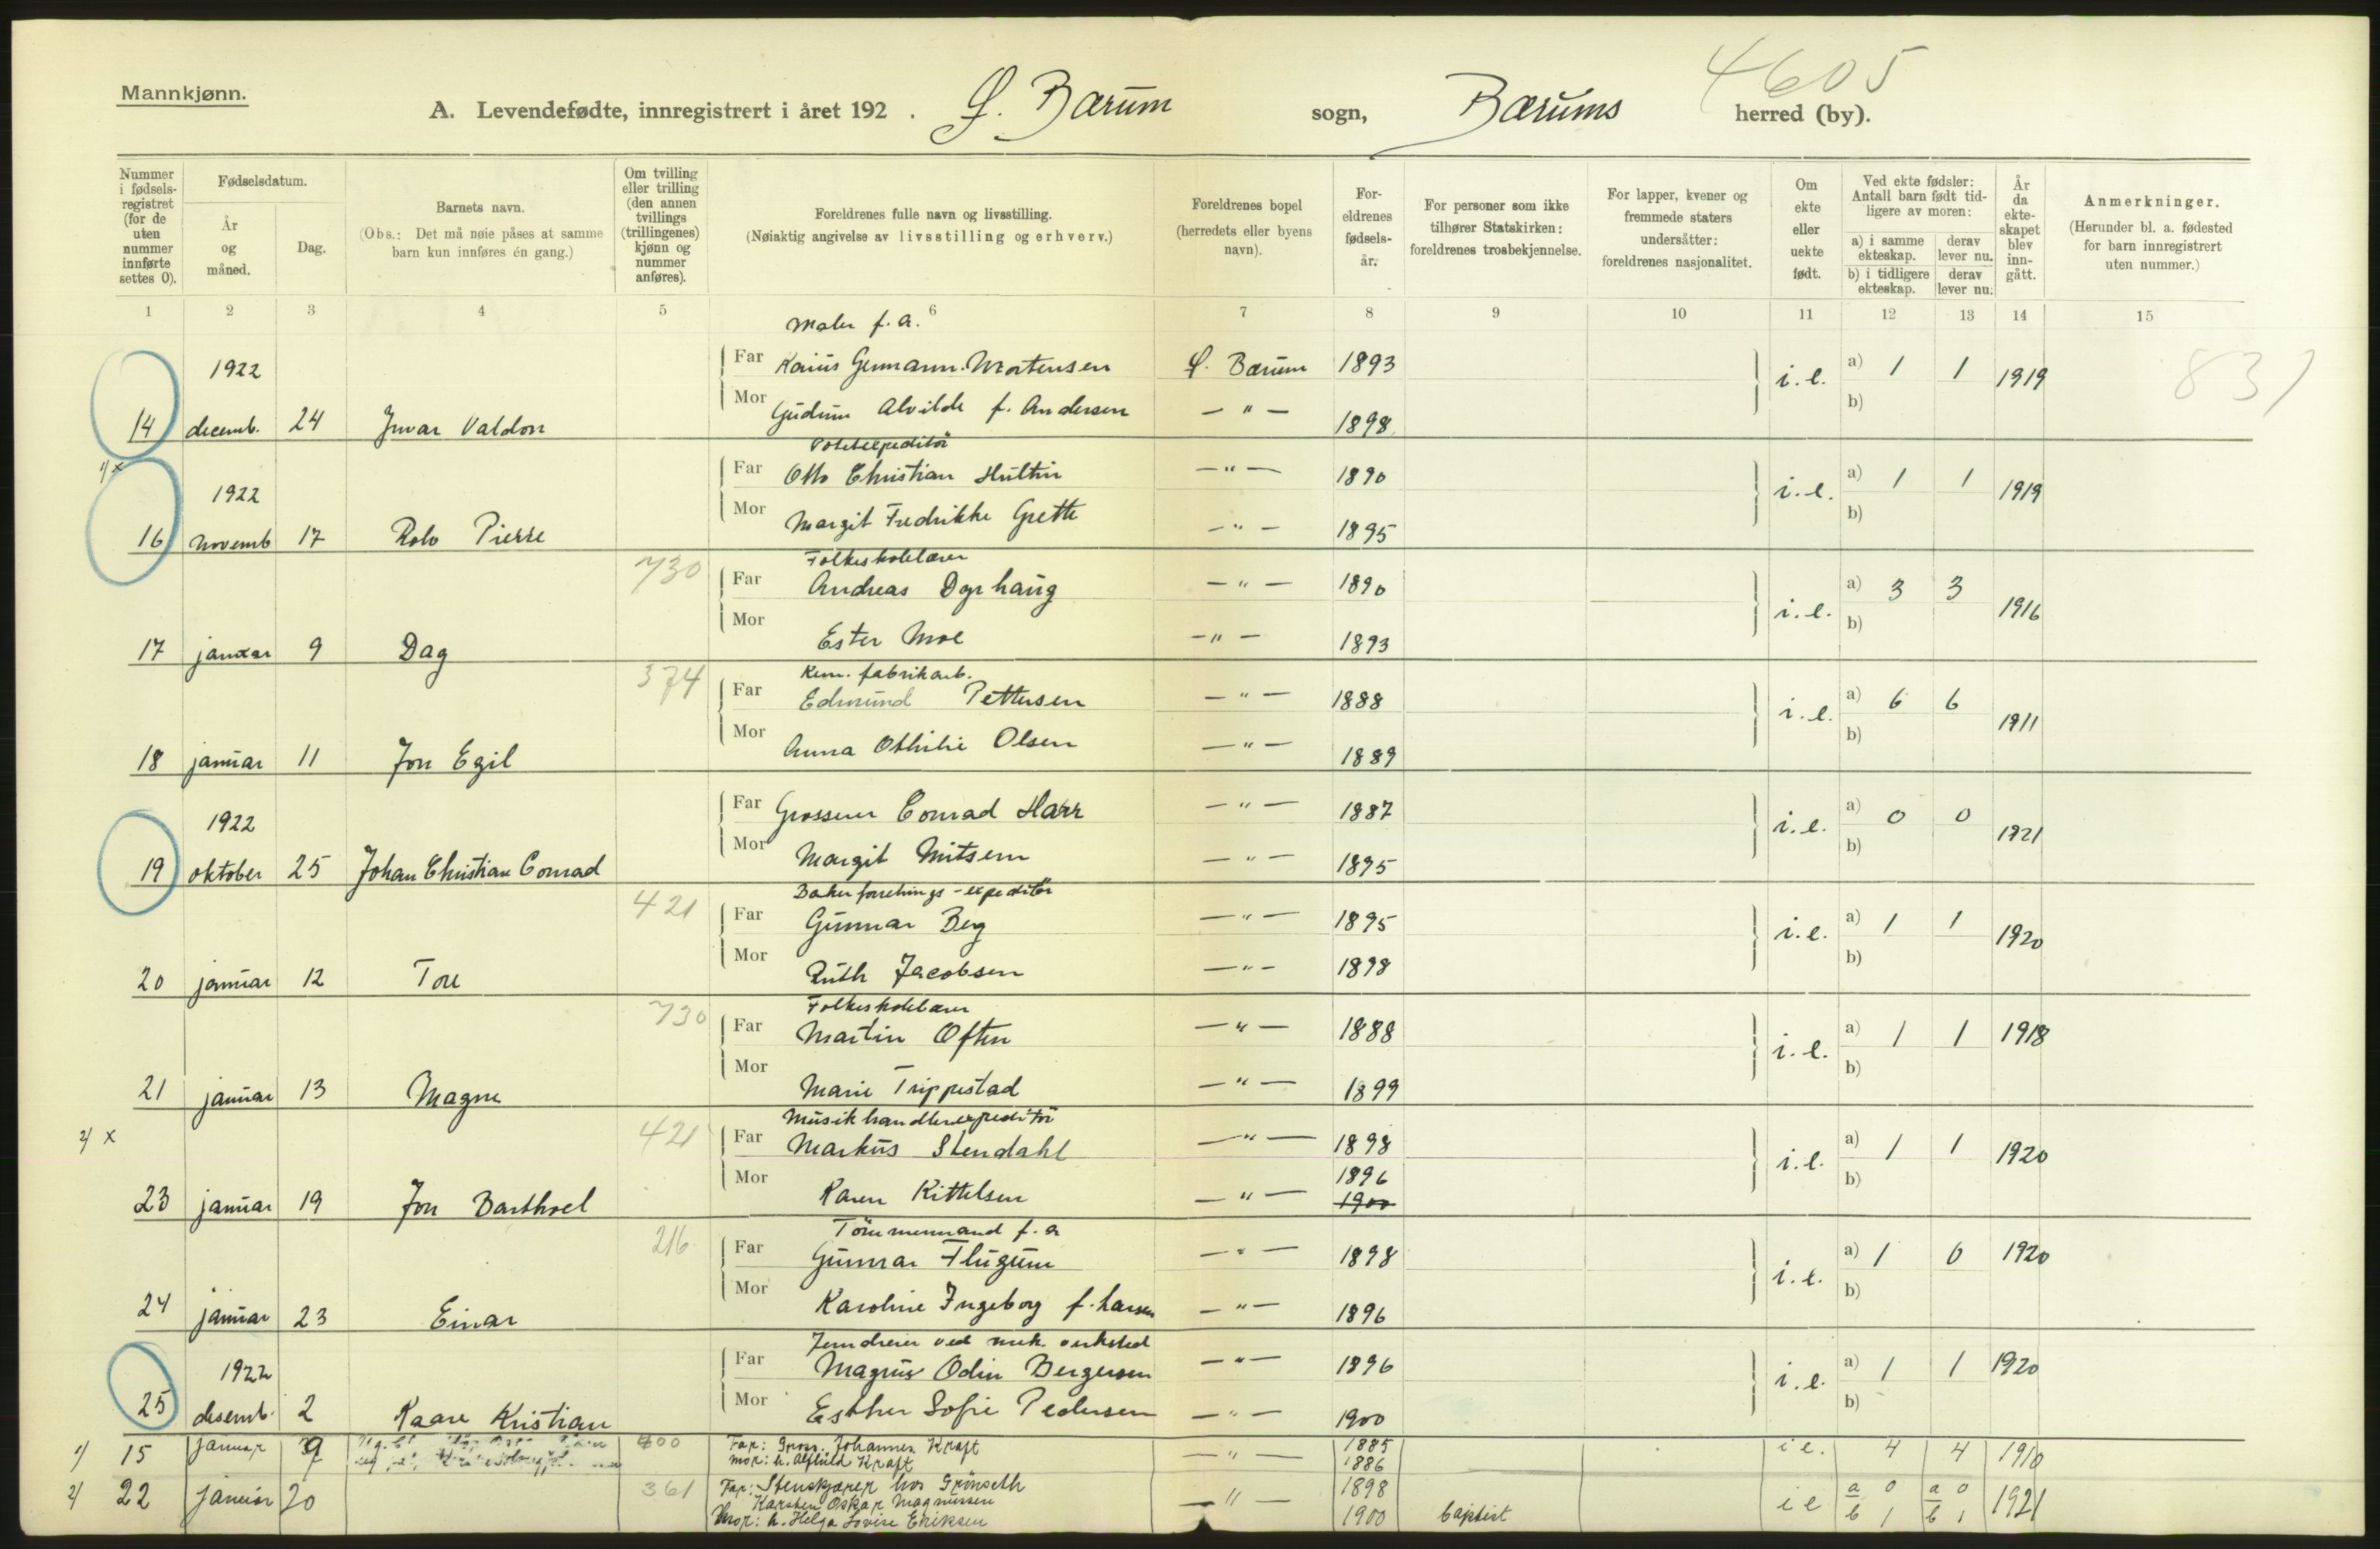 Mannkjønn.
4605
A. Levendefødte, innregistrert i året 192 . Ø. Bærum sogn, Bærums herred (by).
Nummer i fødsels-registret (for de uten nummer innførte settes 0).
Fødselsdatum.
År og måned.
Dag.
Barnets navn.
(Obs.: Det må nøie påses at samme barn kun innføres én gang.)
Om tvilling eller trilling (den annen tvillings (trillingenes) kjønn og nummer anføres).
Foreldrenes fulle navn og livsstilling.
(Nøiaktig angivelse av livsstilling og erhverv.)
Foreldrenes bopel (herredets eller byens navn).
For-eldrenes fødsels-år.
For personer som ikke tilhører Statskirken: foreldrenes trosbekjennelse.
For lapper, kvener og fremmede staters undersåtter: foreldrenes nasjonalitet.
Om ekte eller uekte født.
Ved ekte fødsler: Antall barn født tid-ligere av moren:
a) i samme ekteskap. derav lever nu.
b) i tidligere ekteskap. derav lever nu.
År da ekte-skapet blev inn-gått.
Anmerkninger.
(Herunder bl. a. fødested for barn innregistrert uten nummer.)
1 2 3 4 5 6 7 8 9 10 11 12 13 14 15
Maler f. a.
1922 Far Kaius Germann Mortensen Ø. Bærum 1893 i.e. a) 1 1 1919 831
14 decemb. 24 Ivar Valdon Mor Gudrun Alvilde f. Andersen — " — 1898 b)
1/ x
1922 Far Otto Christian Hultin — " — 1890 i.e. a) 1 1 1919
16 novemb 17 Rolv Pierre Mor Margit Fredrikke Grette — " — 1895 b)
Folkeskolelærer
730 Far Andreas Dyrhaug — " — 1890 i.e. a) 3 3 1916
17 januar 9 Dag Mor Ester Moe — " — 1893 b)
Kem. fabrikarb.
374 Far Edmund Pettersen — " — 1888 i.e. a) 6 6 1911
18 januar 11 Jon Egil Mor Anna Othilie Olsen — " — 1889 b)
1922 Far Grosserer Conrad Harr — " — 1887 i.e. a) 0 0 1921
19 oktober 25 Johan Christian Conrad Mor Margit — " — 1895 b)
Bakerforretnings-expeditør
421 Far Gunnar Berg — " — 1895 i.e. a) 1 1 1920
20 januar 12 Tore Mor Ruth Jacobsen — " — 1898 b)
Folkeskolelærer
730 Far Martin Often — " — 1888 i.e. a) 1 1 1918
21 januar 13 Magne Mor Marie Trippestad — " — 1899 b)
2/ x
Musikhandlerexpeditør
421 Far Markus Stendahl — " — 1898 i.e. a) 1 1 1920
1896
23 januar 19 Jon Barthoel Mor Karen Kittelsen — " — 1900 b)
Tømmermand f. a
216 Far Gunnar Flugum — " — 1898 i.e. a) 1 0 1920
24 januar 23 Einar Mor Karoline Ingeborg f. Larsen — " — 1896 b)
Jerndreier ved mek. verksted
1922 Far Magnus Odin Bergersen — " — 1896 i.e. a) 1 1 1920
25 desemb. 2 Kaare Kristian Mor Esther Sofie Pedersen — " — 1900 b)
1/ 15 januar 9 400 Far: Gross. Johannes Kraft — " — 1885 i e. 4 4 1910
Mor: h. Alfhild Kraft 1886
2/ 22 januar 20 361 Far: Stenskjærer hos Grönseth 1898 i e a 0 a 0 1921
Karsten Oskar Magnussen — " —
Mor: h. Helga Lovise Eriksen 1900 baptist b 1 b 1